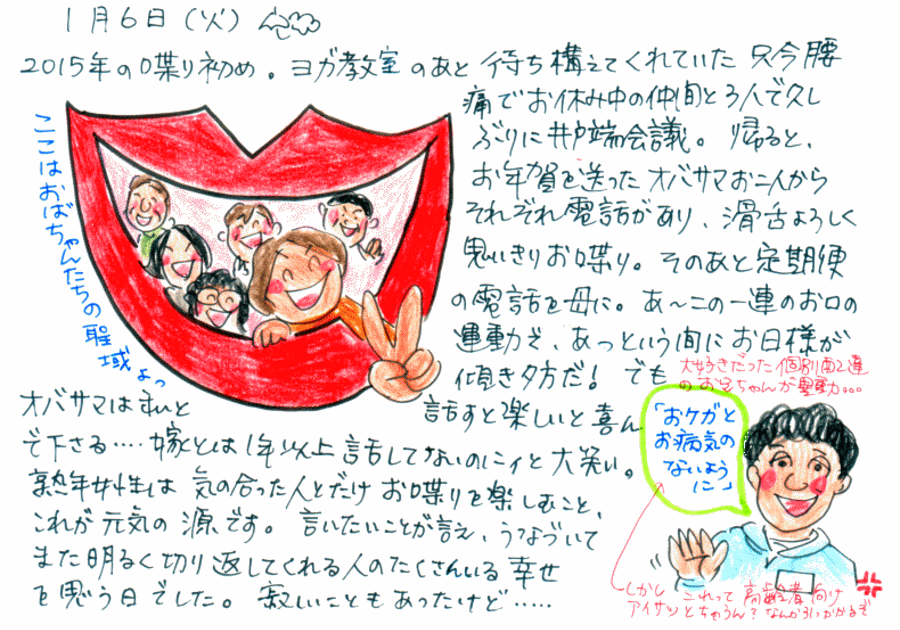 1月6日（火）
2015年の口喋り初め。ヨガ教室のあと 待ち構えてくれていた 只今腰
痛でお休み中の仲間と3人で久し
ぶりに井戸端会議。帰ると、
お年賀を送ったオバサマお二人から
それぞれ電話があり、滑舌よろしく
思いきりお喋り。そのあと定期便
の電話を母に。あ〜この一連のお口の
運動で、あっという間にお日様が
傾き夕方だ！ でも
オバサマは
話すと楽しいと喜ん
で下さる‥‥嫁とは1年以上話してないのにィと大笑い。
熟年女性は 気の合った人とだけ お喋りを楽しむこと、
これが元気の源です。言いたいことが言え、うなづいて
また明るく切り返してくれる人のたくさんいる幸せ
を思う日でした。寂しいこともあったけど‥‥‥
ここはおばちゃんたちの聖域よっ
大好きだった個別配達
のお兄ちゃんが異動。。。
「おケガと
お病気の
ないよう
に」
しかし これって高齢者向け
アイサツとちゃうん？なんかひっかかるぞ